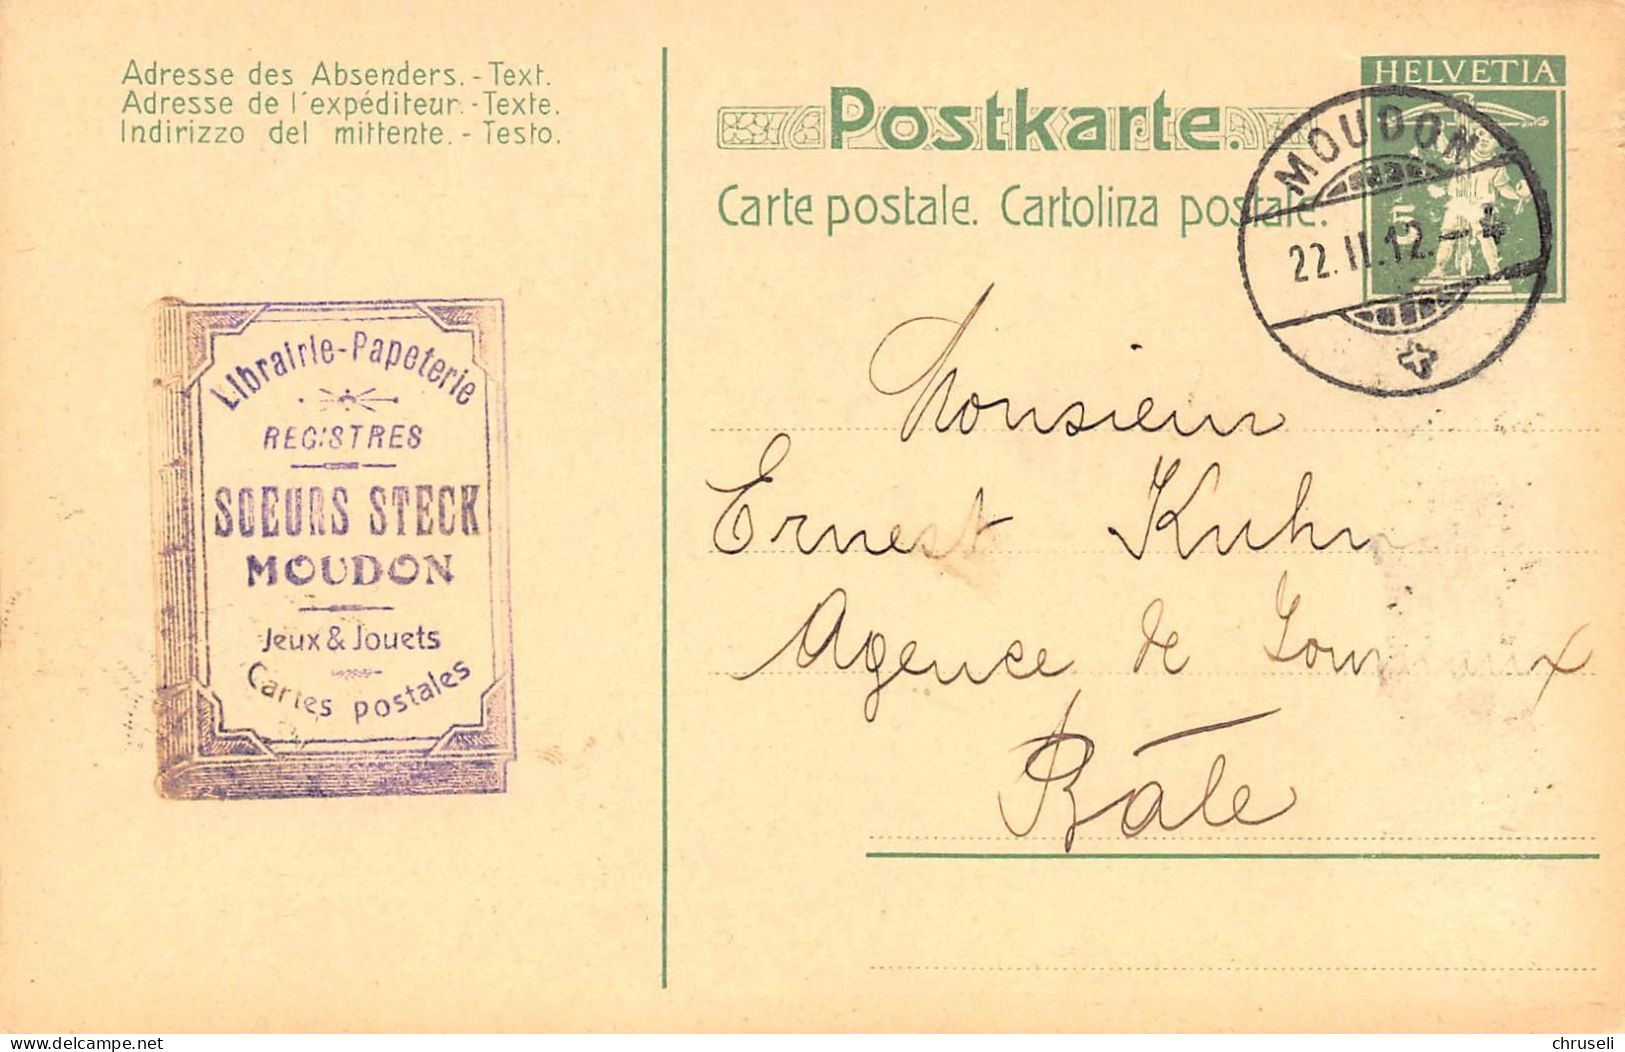 Adresse des Absenders. - Text.
Adresse de l'expéditeur. - Texte.
Indirizzo del mittente. - Testo.
Postkarte.
Carte postale. Cartolina postale.
HELVETIA
5
MOUDON
22.II.12.–4
Librairie-Papeterie
REGISTRES
SOEURS STECK
MOUDON
Jeux & Jouets
Cartes postales
Monsieur
Ernest Kuhn
Agence de
Bâle
delcampe.net
chruseli